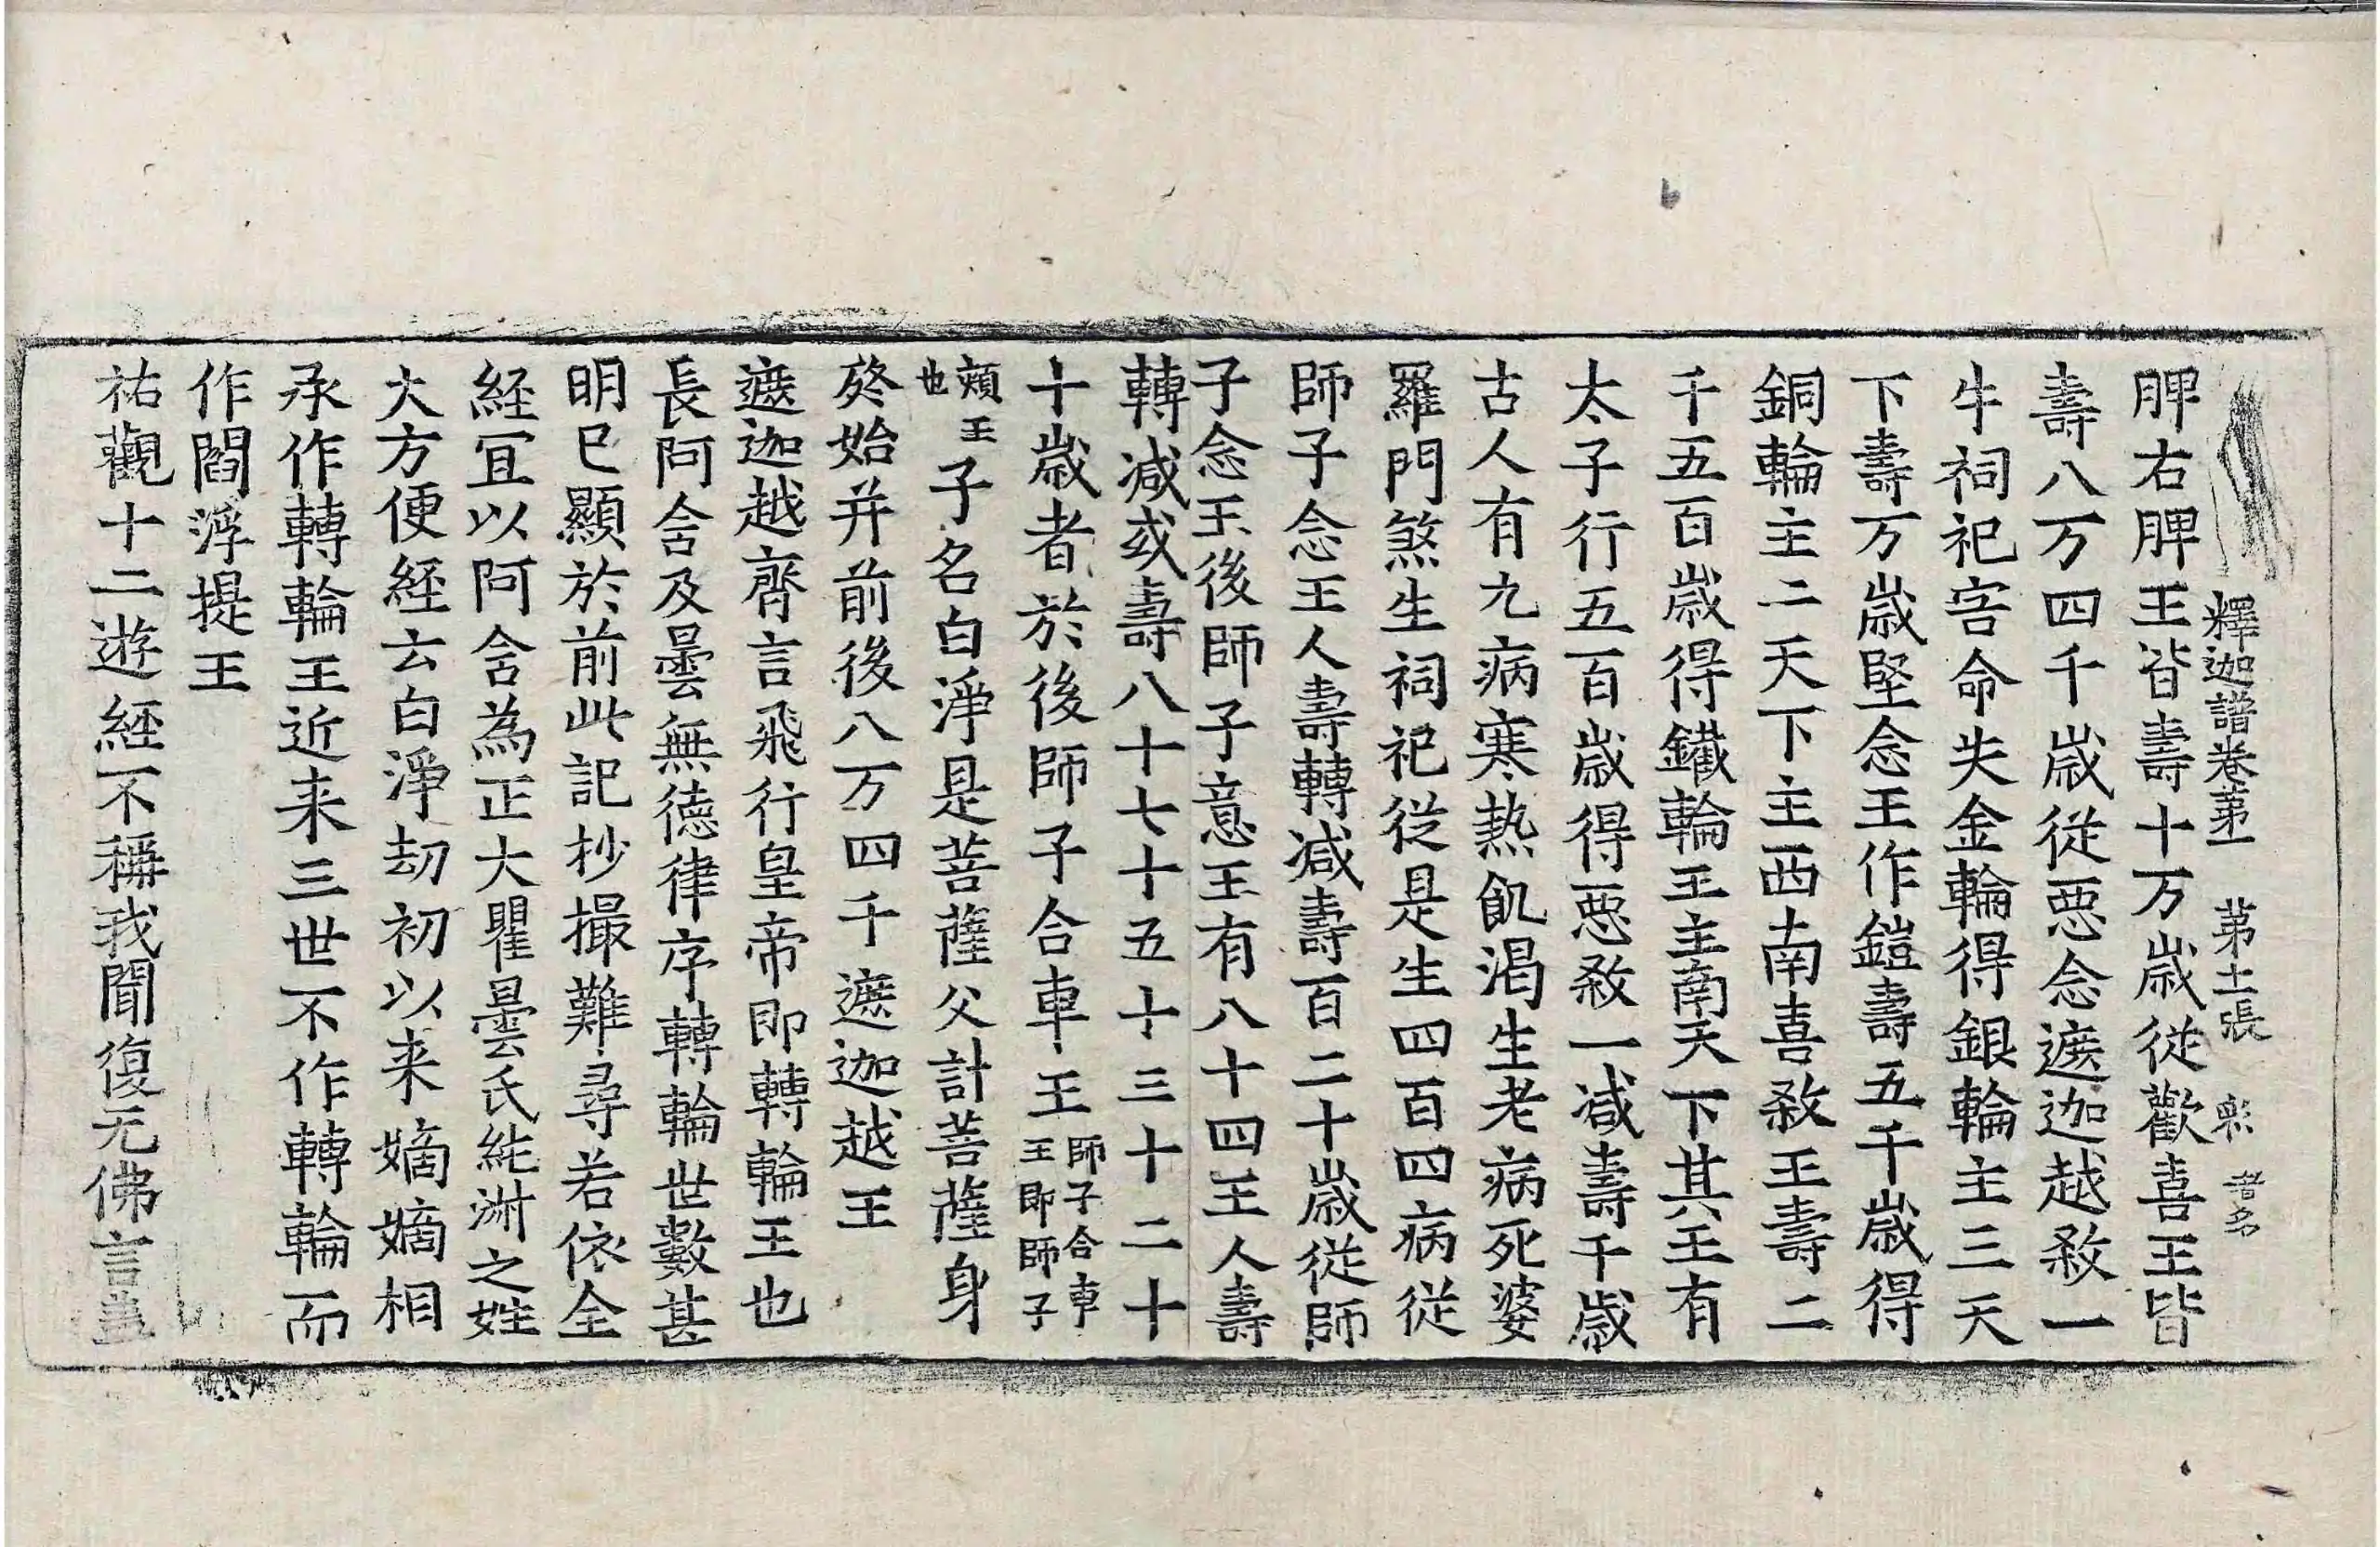 釋迦譜卷苐一 苐十一張
脾右脾王皆壽十万歲從歡喜王皆
壽八万四千歲從惡念遮迦越殺一
牛祠祀害命失金輪得銀輪主三天
下壽万歲堅念王作鎧壽五千歲得
銅輪主二天下主西南喜殺王壽二
千五百歲得鐵輪王主南天下其王有
太子行五百歲得惡殺一减壽千歲
古人有九病寒熱飢渴生老病死婆
羅門煞生祠祀從是生四百四病從
師子念王人壽轉减壽百二十歲從師
子念王後師子意王有八十四王人壽
轉减或壽八十七十五十三十二十
十歲者於後師子合車王師子合車王即師子
頰王也子名白淨是菩薩父計菩薩身
終始并前後八万四千遮迦越王
遮迦越齊言飛行皇帝即轉輪王也
長阿含及曇無德律序轉輪世數甚
明已顯於前此記抄撮難尋若依全
經冝以阿含為正大瞿曇氏純淑之姓
大方便經云白淨劫初以来嫡嫡相
承作轉輪王近来三世不作轉輪而
作閻浮提王
祐觀十二遊經不稱我聞復无佛言盖